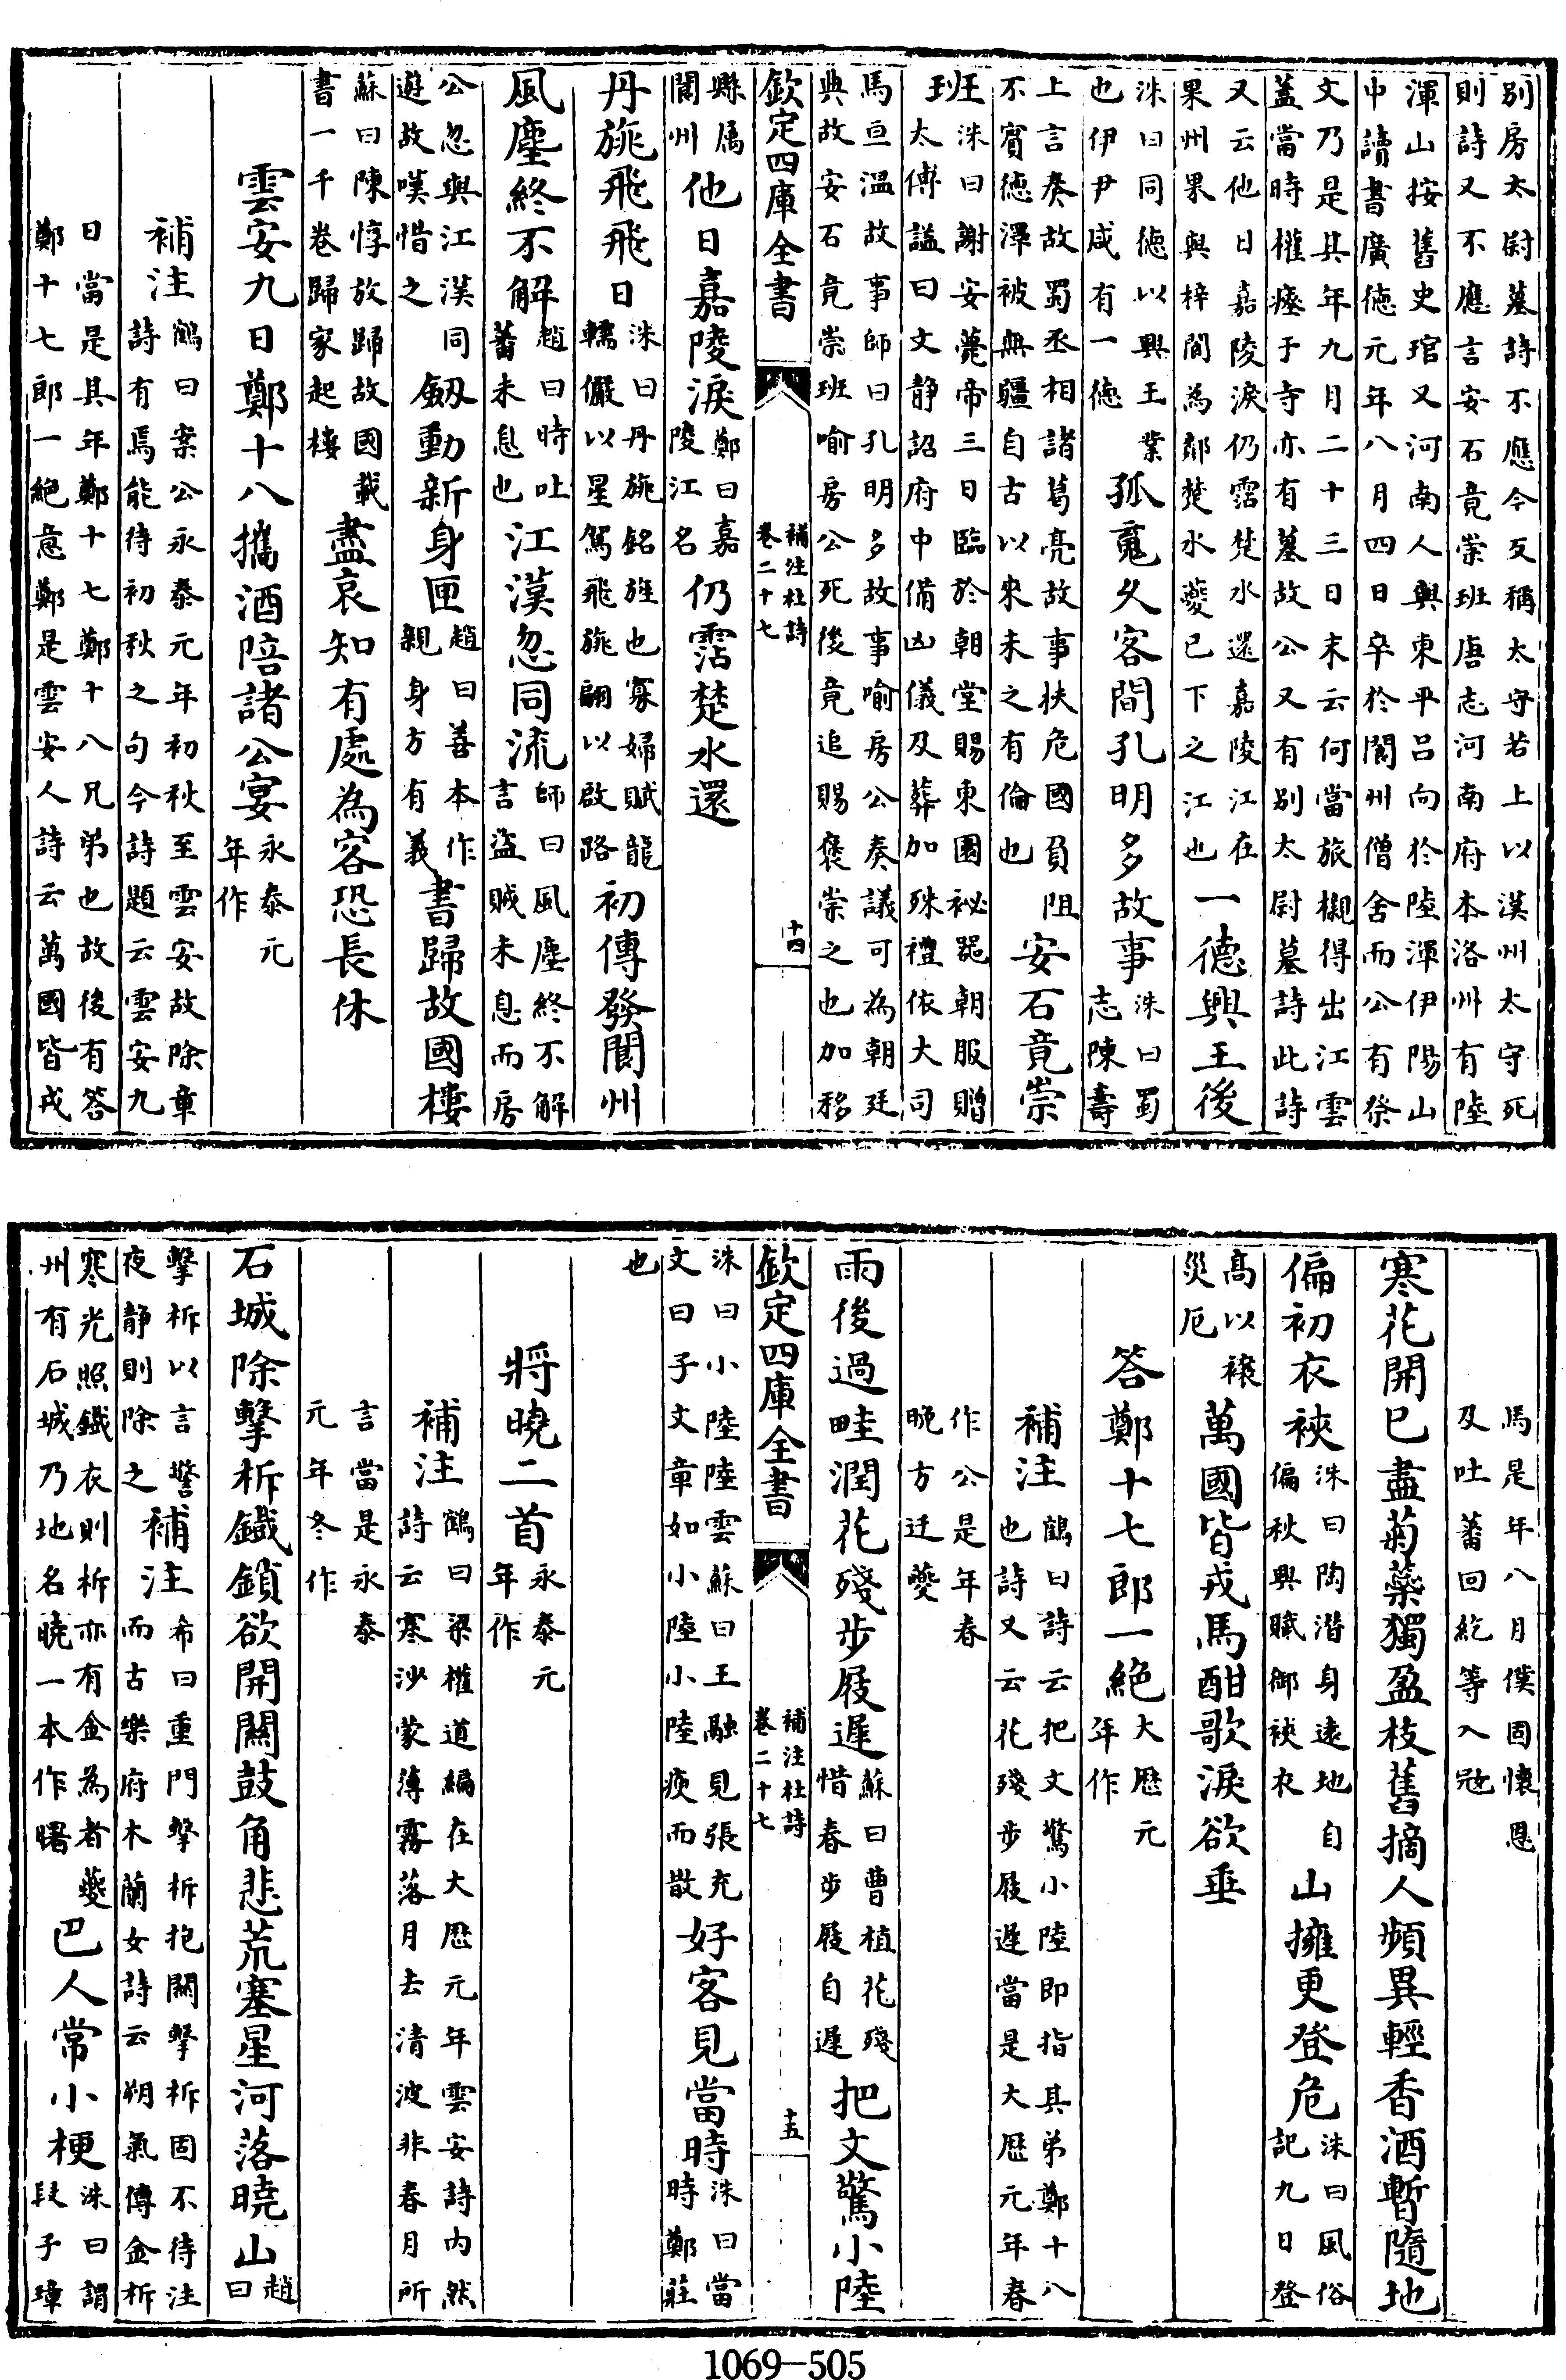 別房太尉墓詩不應今反稱太守若上以漢州太守死
則詩又不應言安石竟崇班唐志河南府本洛州有陸
渾山按舊史琯又河南人與東平呂向於陸渾伊陽山
中讀書廣德元年八月四日卒於閬州僧舍而公有祭
文乃是其年九月二十三日末云何當旅櫬得出江雲
蓋當時權瘞于寺亦有墓故公又有別太尉墓詩此詩
又云他日嘉陵淚仍霑楚水還嘉陵江在
果州果與梓閬為鄰楚水夔已下之江也
一德興王後
洙曰同德以興王業
也伊尹咸有一德
孤䰟久客間孔明多故事
洙曰蜀
志陳壽
上言奏故蜀丞相諸葛亮故事扶危國負阻
不賓德澤被無疆自古以來未之有倫也
安石竟崇
班
洙曰謝安薨帝三日臨於朝堂賜東園祕器朝服贈
太傅謚曰文靜詔府中備凶儀及葬加殊禮依大司
馬亘溫故事師曰孔明多故事喻房公奏議可為朝廷
典故安石竟崇班喻房公死後竟追賜褒崇之也加移
欽定四庫全書
補注杜詩
卷二十七
十四
縣屬
閬州
他日嘉陵淚
鄭曰嘉
陵江名
仍霑楚水還
丹旐飛飛日
洙曰丹旐銘旌也寡婦賦龍
轜儼以星駕飛旐翩以啟路
初傳發閬州
風塵終不解
趙曰時吐
蕃未息也
江漢忽同流
師曰風塵終不解
言盜賊未息而房
公忽與江漢同
遊故嘆惜之
劒動新身匣
趙曰善本作
親身方有義
書歸故國樓
蘇曰陳惇放歸故國載
書一千卷歸家起樓
盡哀知有處為客恐長休
雲安九日鄭十八攜酒陪諸公宴
永泰元
年作
補注
鶴曰案公永泰元年初秋至雲安故除章
詩有焉能待初秋之句今詩題云雲安九
日當是其年鄭十七鄭十八兄弟也故後有答
鄭十七郎一絕意鄭是雲安人詩云萬國皆戎
馬是年八月僕固懷恩
及吐蕃回紇等入冦
寒花開已盡菊蘂獨盈枝舊摘人頻異輕香酒暫隨地
偏初衣裌
洙曰陶潛身遠地自
偏秋興賦御裌衣
山擁更登危
洙曰風俗
記九日登
高以禳
災厄
萬國皆戎馬酣歌淚欲垂
答鄭十七郎一絕
大厯元
年作
補注
鶴曰詩云把文驚小陸即指其弟鄭十八
也詩又云花殘步屐遲當是大厯元年春
作公是年春
晚方迁夔
雨後過畦潤花殘步屐遲
蘇曰曹植花殘
惜春步屐自遲
把文驚小陸
欽定四庫全書
補注杜詩
卷二十七
十五
洙曰小陸陸雲蘇曰王融見張充
文曰子文章如小陸小陸瘐而散
好客見當時
洙曰當
時鄭莊
也
將曉二首
永泰元
年作
補注
鶴曰梁權道編在大厯元年雲安詩內然
詩云寒沙蒙薄霧落月去清波非春月所
言當是永泰
元年冬作
石城除擊柝鐵鎖欲開關鼓角悲荒塞星河落曉山
趙
曰
擊柝以言警
夜靜則除之
補注
希曰重門擊柝抱關擊柝固不待注
而古樂府木蘭女詩云朔氣傳金柝
寒光照鐵衣則柝亦有金為者夔
州有石城乃地名曉一本作曙
巴人常小梗
洙曰謂
段子璋
1069-505